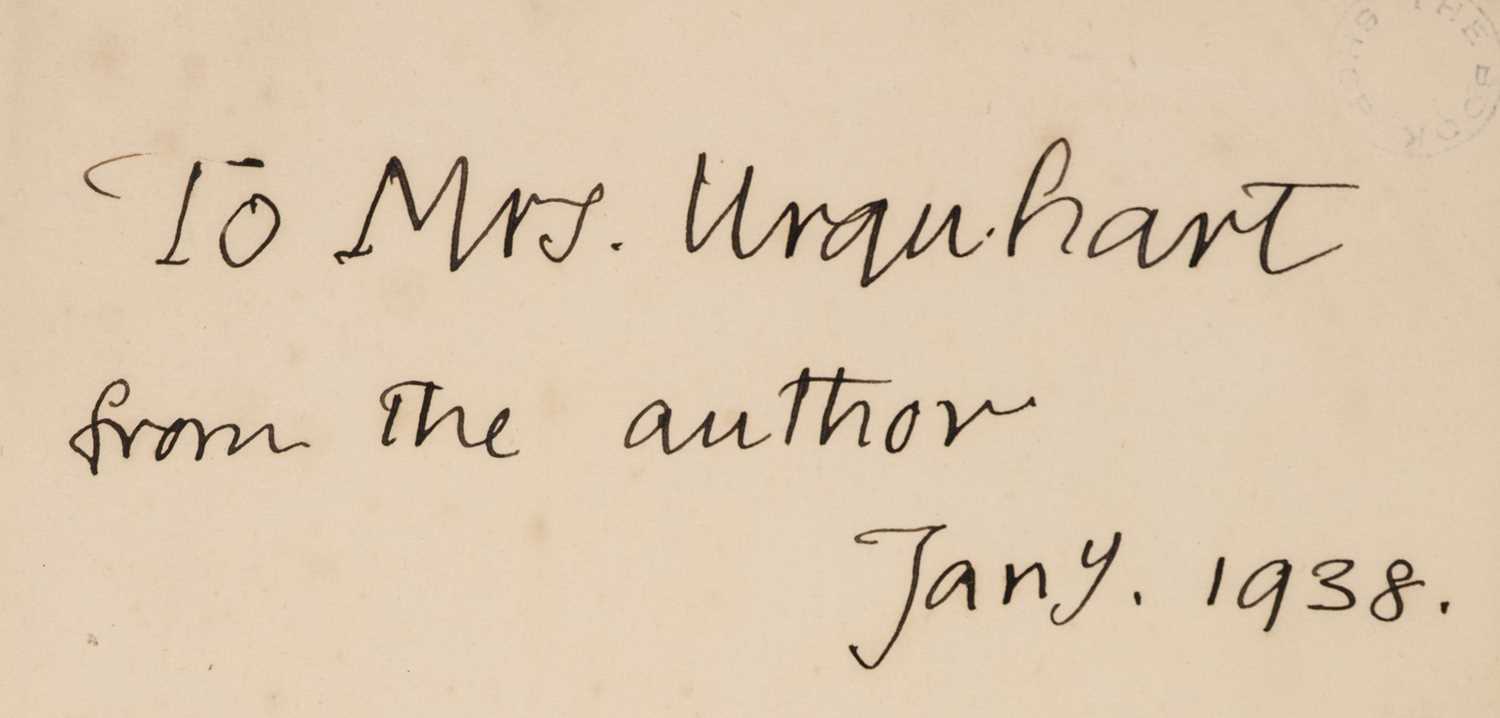 To Mrs. Urquhart
from the author
Jany. 1938.
THE BOOK